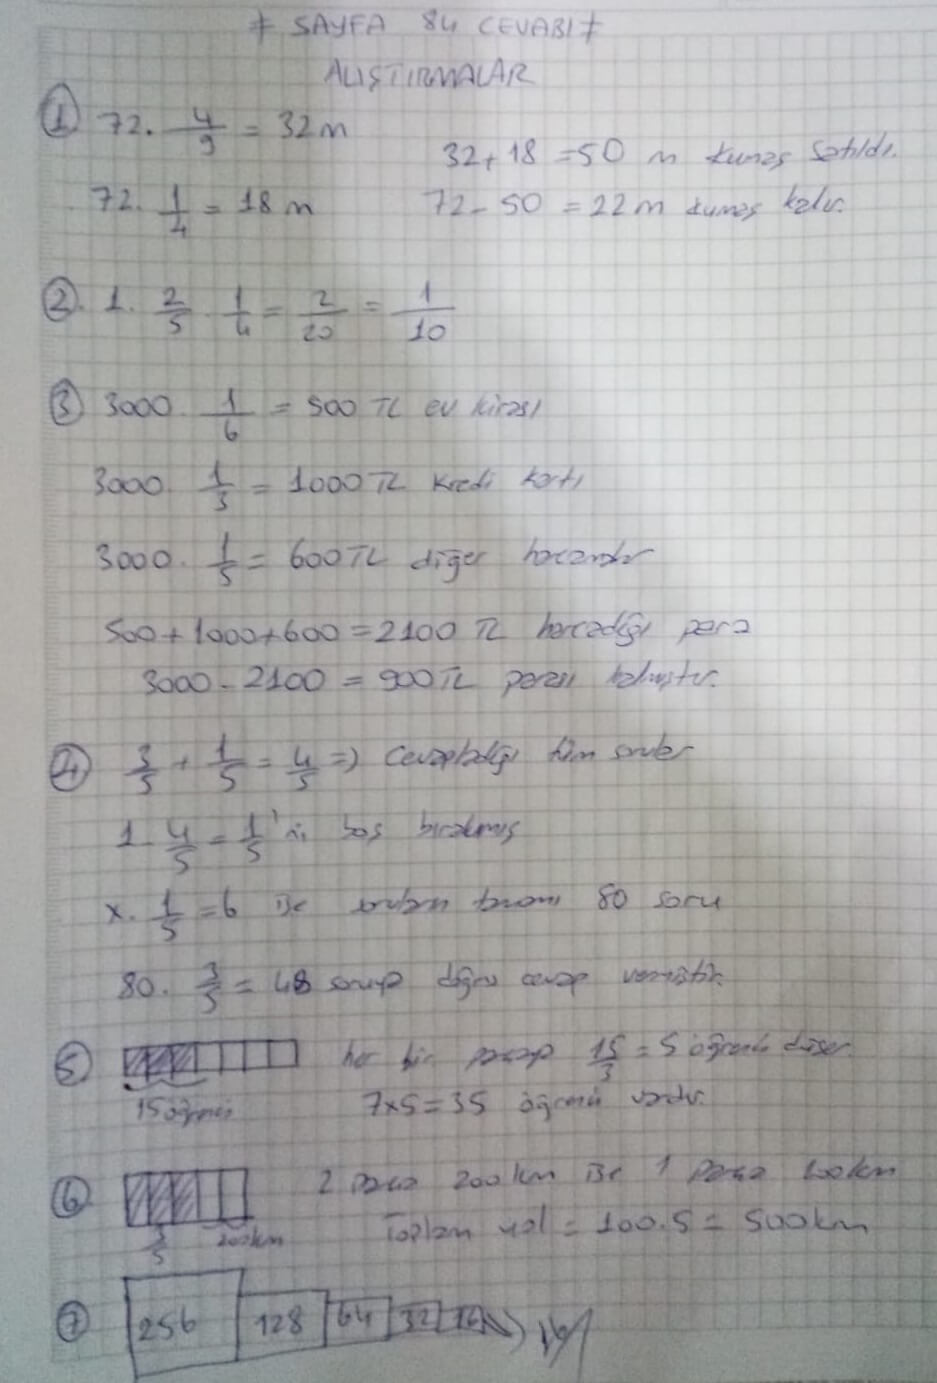 + SAYFA 84 CEVABI +
ALIŞTIRMALAR
① 72. 4/9 = 32m
32+18 =50 m kumaş satıldı.
72. 1/4 = 18 m
72-50 =22m kumaş kalır.
②. 1. 2/5 . 1/4 = 2/20 = 1/10
③ 3000. 1/6 = 500 TL ev kirası
3000. 1/3 = 1000 TL kredi kartı
3000. 1/5 = 600TL diğer harcamalar
500+1000+600=2100 TL harcadığı para
3000-2100 = 900TL parası kalmıştır.
④ 3/5 + 1/5 = 4/5 => Cevapladığı tüm sorular
1- 4/5 = 1/5 'ini boş bırakmış
x. 1/5 =6 ise soruların tamamı 80 soru
80. 3/5 = 48 soruya doğru cevap vermiştir.
⑤ her bir parçaya 15/3 = 5 öğrenci düşer.
15 öğrenci
7x5=35 öğrenci vardır.
⑥ 2 parça 200km ise 1 parça 100km
3/5 200km
Toplam yol = 100.5= 500km
⑦ 256 128 64 32 16